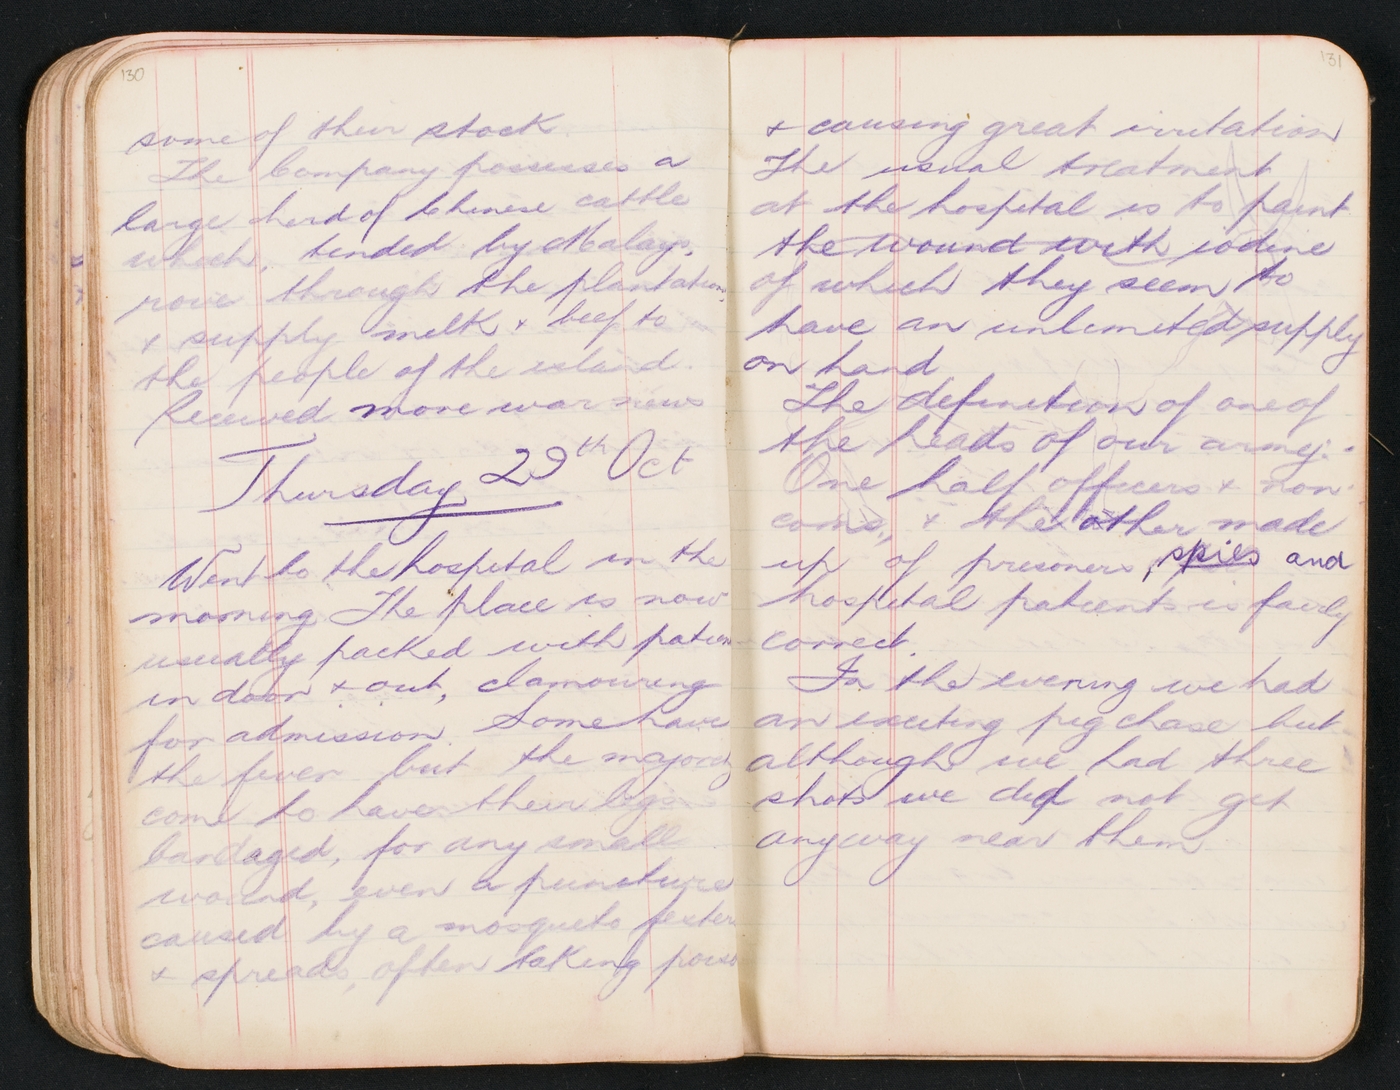 130
some of their stock.
The Company possesses a
large herd of Chinese cattle
which, tended by Malays,
rove through the plantation
& supply milk & beef to
the people of the island.
Received more war news
Thursday 29th Oct
Went to the hospital in the
morning. The place is now
usually packed with patien
in door & out, clamouring
for admission. Some have
the fever but the majority
come to have their legs
bandaged, for any small
wound, even a puncture
caused by a mosqueto fester
& spreads, often taking poison
131
& causing great irritation
The usual treatment
at the hospital is to paint
the wound with iodine
of which they seem to
have an unlimited supply
on hand
The definition of one of
the heads of our army:-
One half officers & non-
coms., & the other made
up of prisoners, spies and
hospital patients is fairly
correct.
In the evening we had
an exciting pig chase but
although we had three
shots we did not get
anyway near them